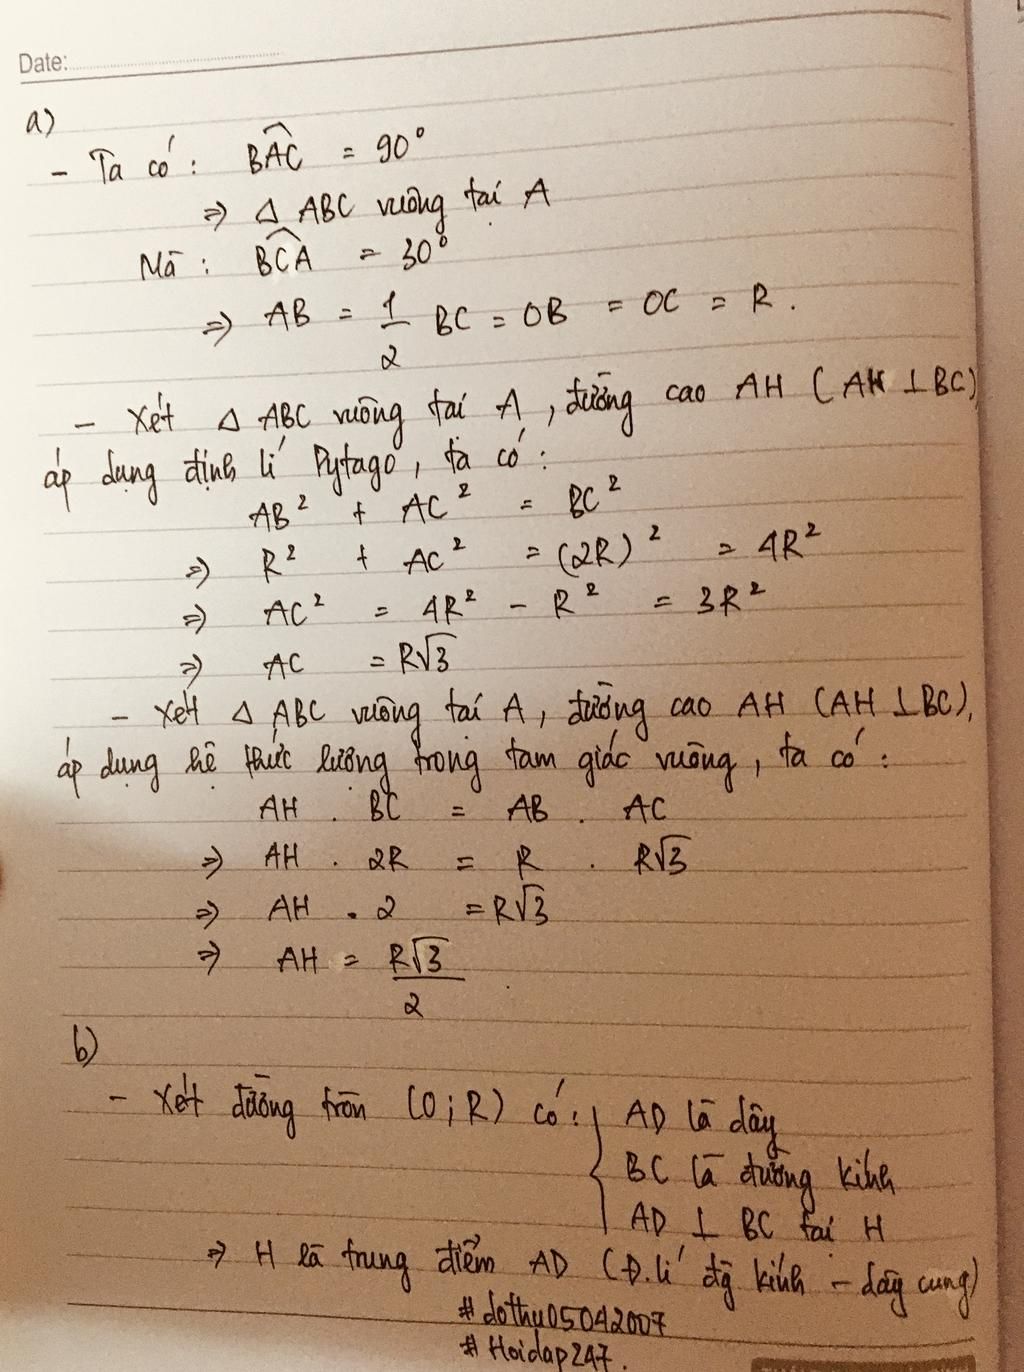 Date:
a)
- Ta có: BAC = 90°
⇒ Δ ABC vuông tại A
Mà: BCA = 30°
⇒ AB = 1/2 BC = OB = OC = R.
- Xét Δ ABC vuông tại A, đường cao AH (AH ⊥ BC)
áp dụng định lí Pytago, ta có:
AB² + AC² = BC²
⇒ R² + AC² = (2R)² = 4R²
⇒ AC² = 4R² - R² = 3R²
⇒ AC = R√3
- Xét Δ ABC vuông tại A, đường cao AH (AH ⊥ BC),
áp dụng hệ thức lượng trong tam giác vuông, ta có:
AH . BC = AB . AC
⇒ AH . 2R = R . R√3
⇒ AH . 2 = R√3
⇒ AH = R√3/2
b)
- Xét đường tròn (O;R) có: { AD là dây
BC là đường kính
AD ⊥ BC tại H
⇒ H là trung điểm AD (Đ.lí đg kính - dây cung)
#dothu05042007
#Hoidap247.